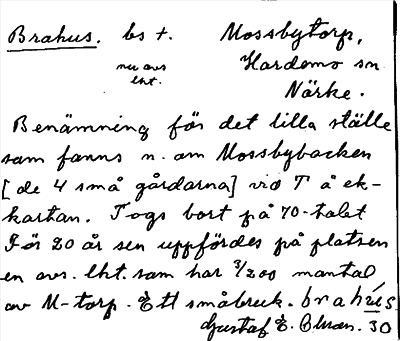 Brahus. bs +. Mossbytorp,
nu avs Hardemo sn
lht. Närke.
Benämning för det lilla ställe
som fanns n. om Mossbybacken
[de 4 små gårdarna] vid T å ek-
kartan. Togs bort på 70-talet
För 20 år sen uppfördes på platsen
en avs. lht. som har 3/200 mantal
av M-torp. Ett småbruk. brahús.
Gustaf E. 30